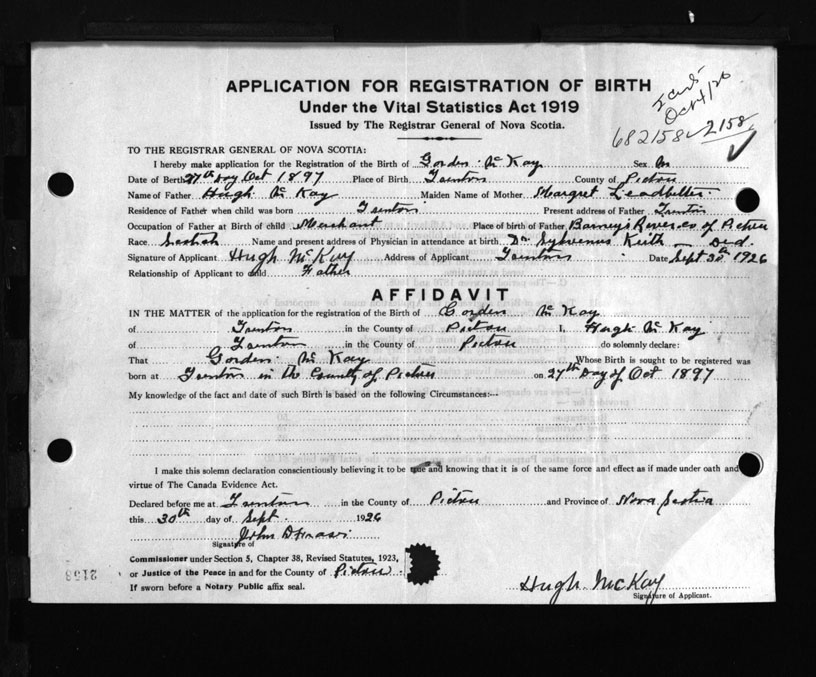 APPLICATION FOR REGISTRATION OF BIRTH
Under the Vital Statistics Act 1919
Issued by The Registrar General of Nova Scotia.
Oct 4/26
682158 2158
TO THE REGISTRAR GENERAL OF NOVA SCOTIA:
I hereby make application for the Registration of the Birth of Gorden McKay Sex M
Date of Birth 27th Day Oct 1897 Place of Birth Trenton County of Pictou
Name of Father Hugh McKay Maiden Name of Mother Margret Leadbetter
Residence of Father when child was born Trenton Present address of Father Trenton
Occupation of Father at Birth of child Merchant Place of birth of Father Barney's River Co of Pictou
Race Scotch Name and present address of Physician in attendance at birth Dr Sylvenus Keith - Ded.
Signature of Applicant Hugh McKay Address of Applicant Trenton Date Sept 30th 1926
Relationship of Applicant to child Father
AFFIDAVIT
IN THE MATTER of the application for the registration of the Birth of Gorden McKay
of Trenton in the County of Pictou I, Hugh McKay
of Trenton in the County of Pictou do solemnly declare:
That Gorden McKay Whose Birth is sought to be registered was
born at Trenton in the County of Pictou on 27th Day of Oct 1897
My knowledge of the fact and date of such Birth is based on the following Circumstances:--
I make this solemn declaration conscientiously believing it to be true and knowing that it is of the same force and effect as if made under oath and
virtue of The Canada Evidence Act.
Declared before me at Trenton in the County of Pictou and Province of Nova Scotia
this 30th day of Sept. 1926
John
Signature of
Commissioner under Section 5, Chapter 38, Revised Statutes, 1923,
or Justice of the Peace in and for the County of Pictou
If sworn before a Notary Public affix seal.
Hugh McKay
Signature of Applicant.
2158